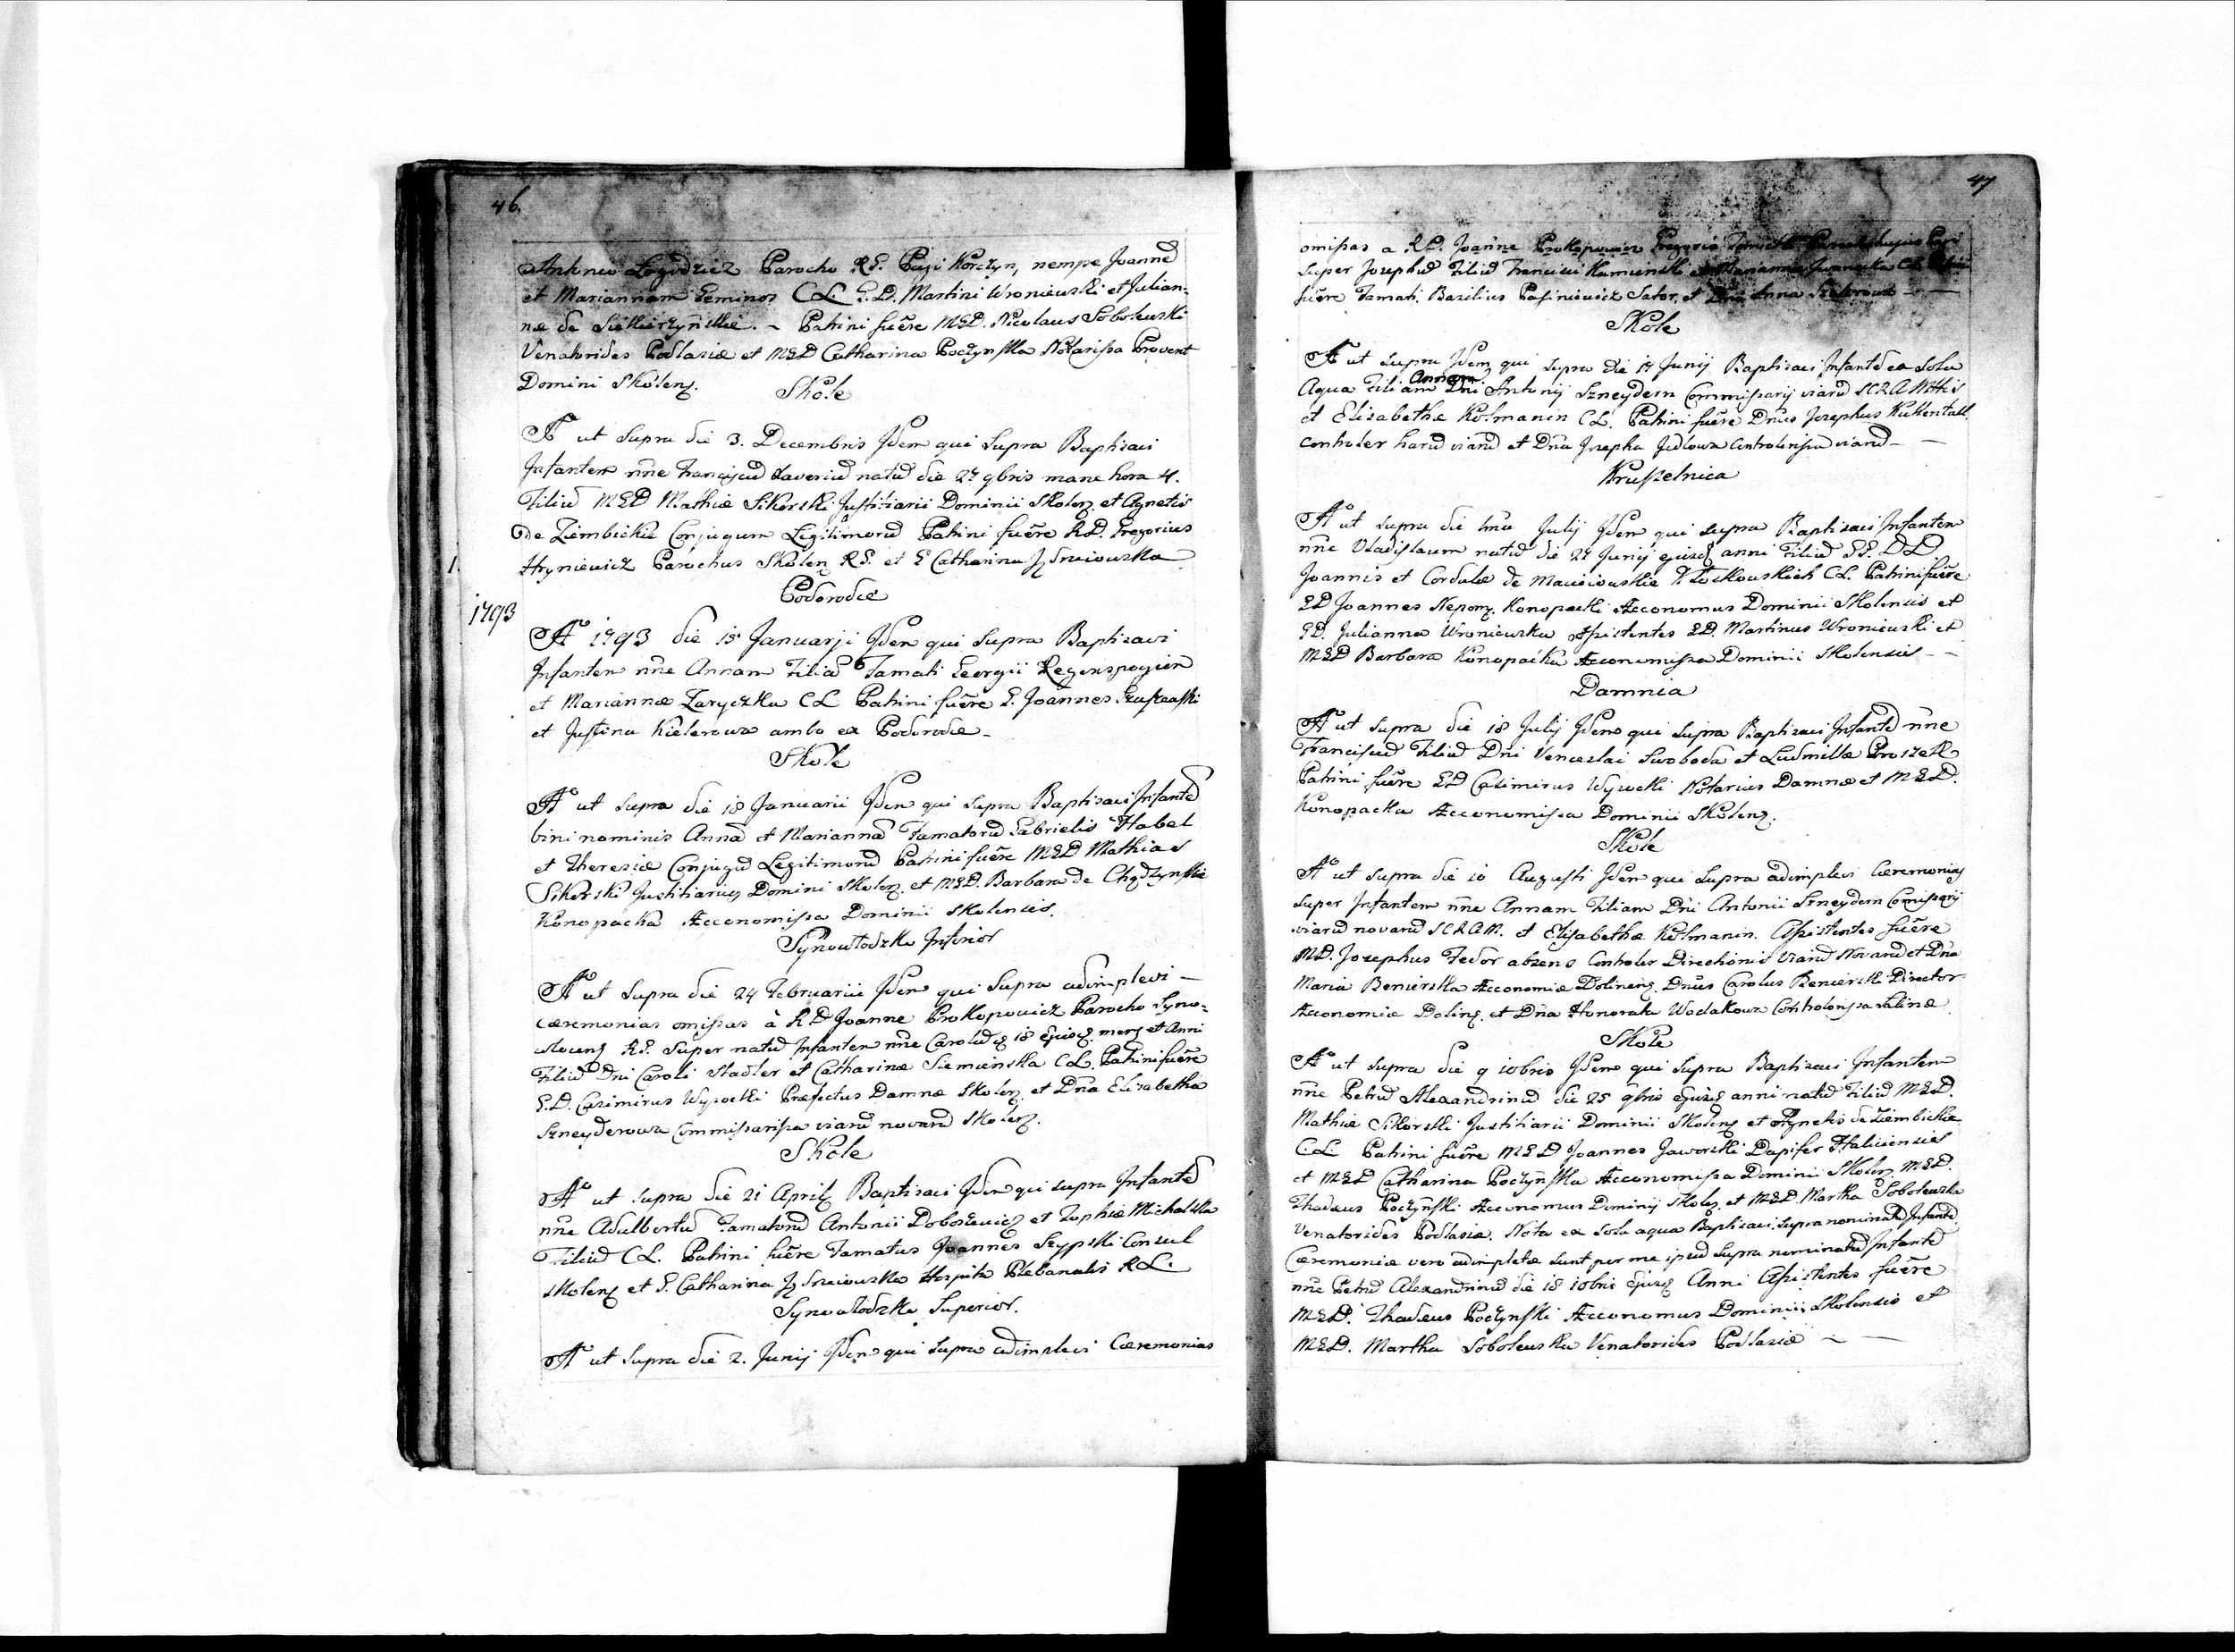 46.
Antonio Łogodzicz Parocho R.G. Pagi Korczyn, nempe Joannē
et Mariannam Geminos C.L. G.D. Martini Wroniewski et Julian-
næ de Siekierzyńskie. ~ Patrini fuēre MGD. Nicolaus Sobolewski
Venatorides Podlasiæ et MGD Catharina Poczynska Notarissa Provent
Domini Skolenz.
Skole
Aº ut supra die 3. Decembris Idem qui supra Baptisavi
Infantem nñe Franciscū Xaveriū natū die 27 9bris mane hora 4.
Filiū MGD Mathiæ Sikorski Justitiarii Dominii Skolenz et Agnetis
de Ziembickie Conjugum Legitimorū Patrini fuēre RD. Gregorius
Hryniewicz Parochus Skolenz R.G. et G Catharina
1.
Podorodce
1793
Aº 1793 die 15 Januarji Idem qui supra Baptisavi
Infantem nñe Annam Filiā Famati Georgii Regenspogien
et Mariannæ Zaryczka CL Patrini fuēre G. Joannes
et Justina Kielerowa ambo ex Podorodce_
Skole
Aº ut supra die 18 Januarii Idem qui supra Baptisavi Infantē
bini nominis Annā et Mariannā Famatorū Gabrielis Habel
et Theresiæ Conjugū Legitimorū Patrini fuēre MGD Mathias
Sikorski Justitiarius Domini Skolenz. et MGD. Barbara de Chądzyńskie
Konopacka Æconomissa Dominii Skolensis.
Synowłodzko Inferior
Aº ut supra die 24 Februarii Idem qui supra adimplevi —
cæremonias omissas à RD Joanne Prokopowicz Parocho Syno-
wlocenz RG. super natū Infantem nñe Carolū 18 Ejusdz menz et Anni
Filiū Dni Caroli Stadler et Catharinæ Siemienska CL. Patrini fuēre
G.D. Casimirus Wysocki Præfectus Damnæ Skolenz. et Dña Elisabetha
Szneyderowa Commissarissa viarū novarū Skolenz.
Skole
Aº ut supra die 21 Aprilz Baptisavi Idem qui supra Infantē
nñe Adalbertū Famatorū Antonii Doboszewicz et Zophiæ Michalska
Filiū CL. Patrini fuēre Famatus Joannes Szypski Consul
Skolenz et G. Catharina Hospita Plebanalis RL.
Synowłodzko Superior.
Aº ut supra die 2. Junij Idem qui supra adimplevi Cæremonias
47
omissas a RD. Joanne Prokopowicz
super Josephū Filiū Francisci Kamienski et Marianna
fuēre Famati. Basilius Pasiniewicz Sator, et Dña Anna
Skole
Aº ut supra Idem qui supra die 17 Junij Baptisavi Infantē ex sola
Aqua Filiam Annam Dni Antonij Szneydern Commissarij viarū SCRAMttis
et Elisabethæ Kolmanin CL. Patrini fuēre Dñus Josephus Kukentall
Controler harū viarū et Dña Josepha Jedlowa Controlerissa viarū —
Kruszelnica
Aº ut supra die 1ma Julij Idem qui supra Baptisavi Infantem
nñe Vladislaum natū die 27 Junij ejusdz anni Filiū GG. DD
Joannis et Cordulæ de Maciowskie CL. Patrini fuēre
GD Joannes Nepom. Konopacki Æconomus Dominii Skolensis et
GD. Julianna Wroniewska Assistentes GD. Martinus Wroniewski et
MGD Barbara Konopacka Æconomissa Dominii Skolensis — —
Damnia
Aº ut supra die 18 Julij Idem qui supra Baptisavi Infantē nñe
Franciscū Filiū Dñi Venceslai Swoboda et Ludmillæ
Patrini fuēre GD Casimirus Wysocki Notarius Damnæ et MGD.
Konopacka Æconomissa Dominii Skolenz.
Skole
Aº ut supra die 10 Augusti Idem qui supra adimplevi Cæremonias
super Infantem nñe Annam Filiam Dñi Antonii Szneydern Comissarij
viarū novarū SCRAM. et Elisabethæ Kolmanin. Assistentes fuēre
MD. Josephus Fedor absens Controler Directionis viarū Novarū et Dña
Maria Benierska Æconomiæ Dolinenz. Dñus Carolus Benierski Director
Æconomiæ Dolinz. et Dña Honorata Wodakowa Controlorissa Salinæ
Skole
Aº ut supra die 9 10bris Idem qui supra Baptisavi Infantem
nñe Petrū Alexandrinū die 25 9bris Ejusdz anni natū Filiū MGD.
Mathiæ Sikorski Justitiarii Dominii Skolenz et Agnetis de Ziembickie
C.L. Patrini fuēre MGD Joannes Jaworski Dapifer Haliciensis
et MGD Catharina Poczyńska Æconomissa Dominii Skolenz MGD.
Thadæus Poczyński Æconomus Dominij Skolenz. et MGD. Martha Sobolewska
Venatorides Podlasiæ. Nota ex sola aqua Baptisavi supra nominatū Infantē.
Cæremoniæ vero adimpletæ sunt per me ipsū supra nominatū Infantē
nñe Petrū Alexandrinū die 18 10bris Ejusdz Anni Assistentes fuēre
MGD. Thadæus Poczyński Æconomus Dominii Skolensis et
MGD. Martha Sobolewska Venatorides Podlasiæ ~ —